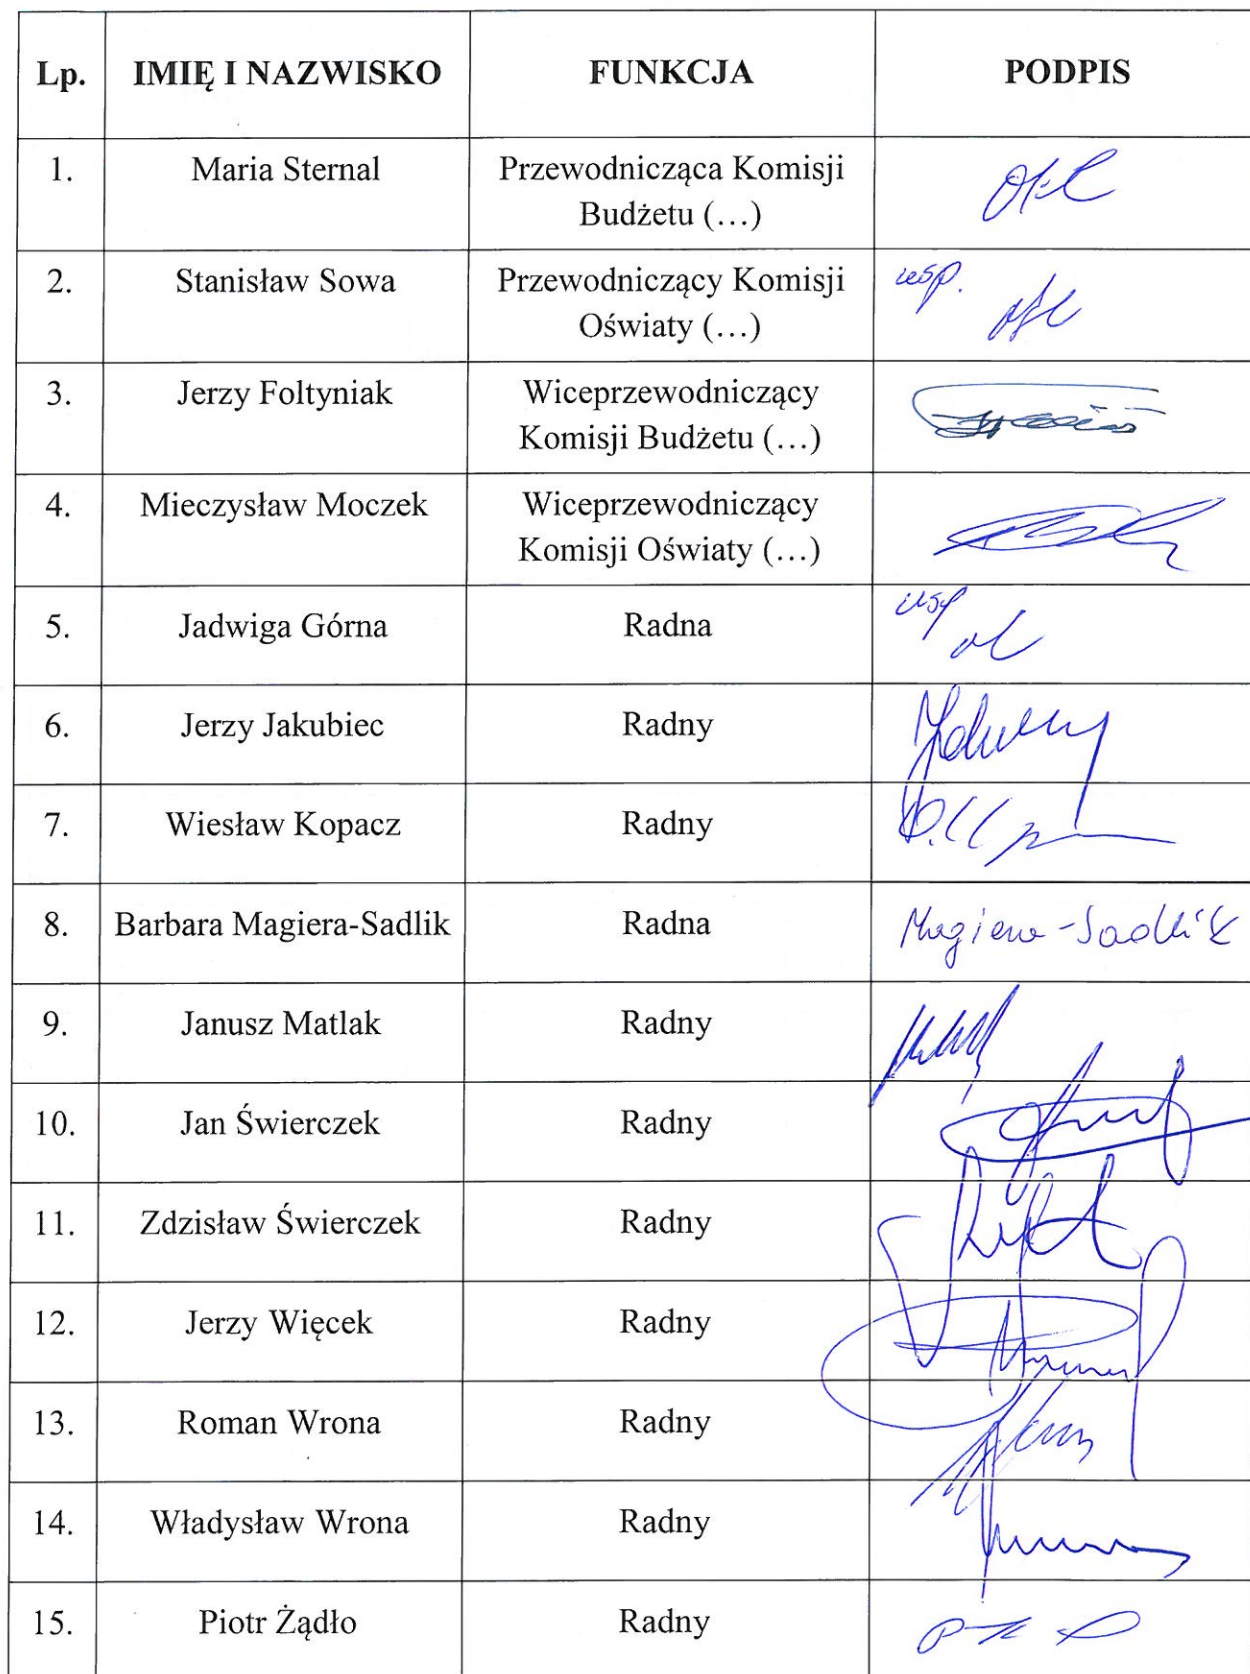 Lp. IMIĘ I NAZWISKO FUNKCJA PODPIS
1. Maria Sternal Przewodnicząca Komisji
Budżetu (…)
2. Stanisław Sowa Przewodniczący Komisji usp.
Oświaty (…)
3. Jerzy Foltyniak Wiceprzewodniczący
Komisji Budżetu (…)
4. Mieczysław Moczek Wiceprzewodniczący
Komisji Oświaty (…)
5. Jadwiga Górna Radna usp
6. Jerzy Jakubiec Radny
7. Wiesław Kopacz Radny
8. Barbara Magiera-Sadlik Radna Magiera-Sadlik
9. Janusz Matlak Radny
10. Jan Świerczek Radny
11. Zdzisław Świerczek Radny
12. Jerzy Więcek Radny
13. Roman Wrona Radny
14. Władysław Wrona Radny
15. Piotr Żądło Radny